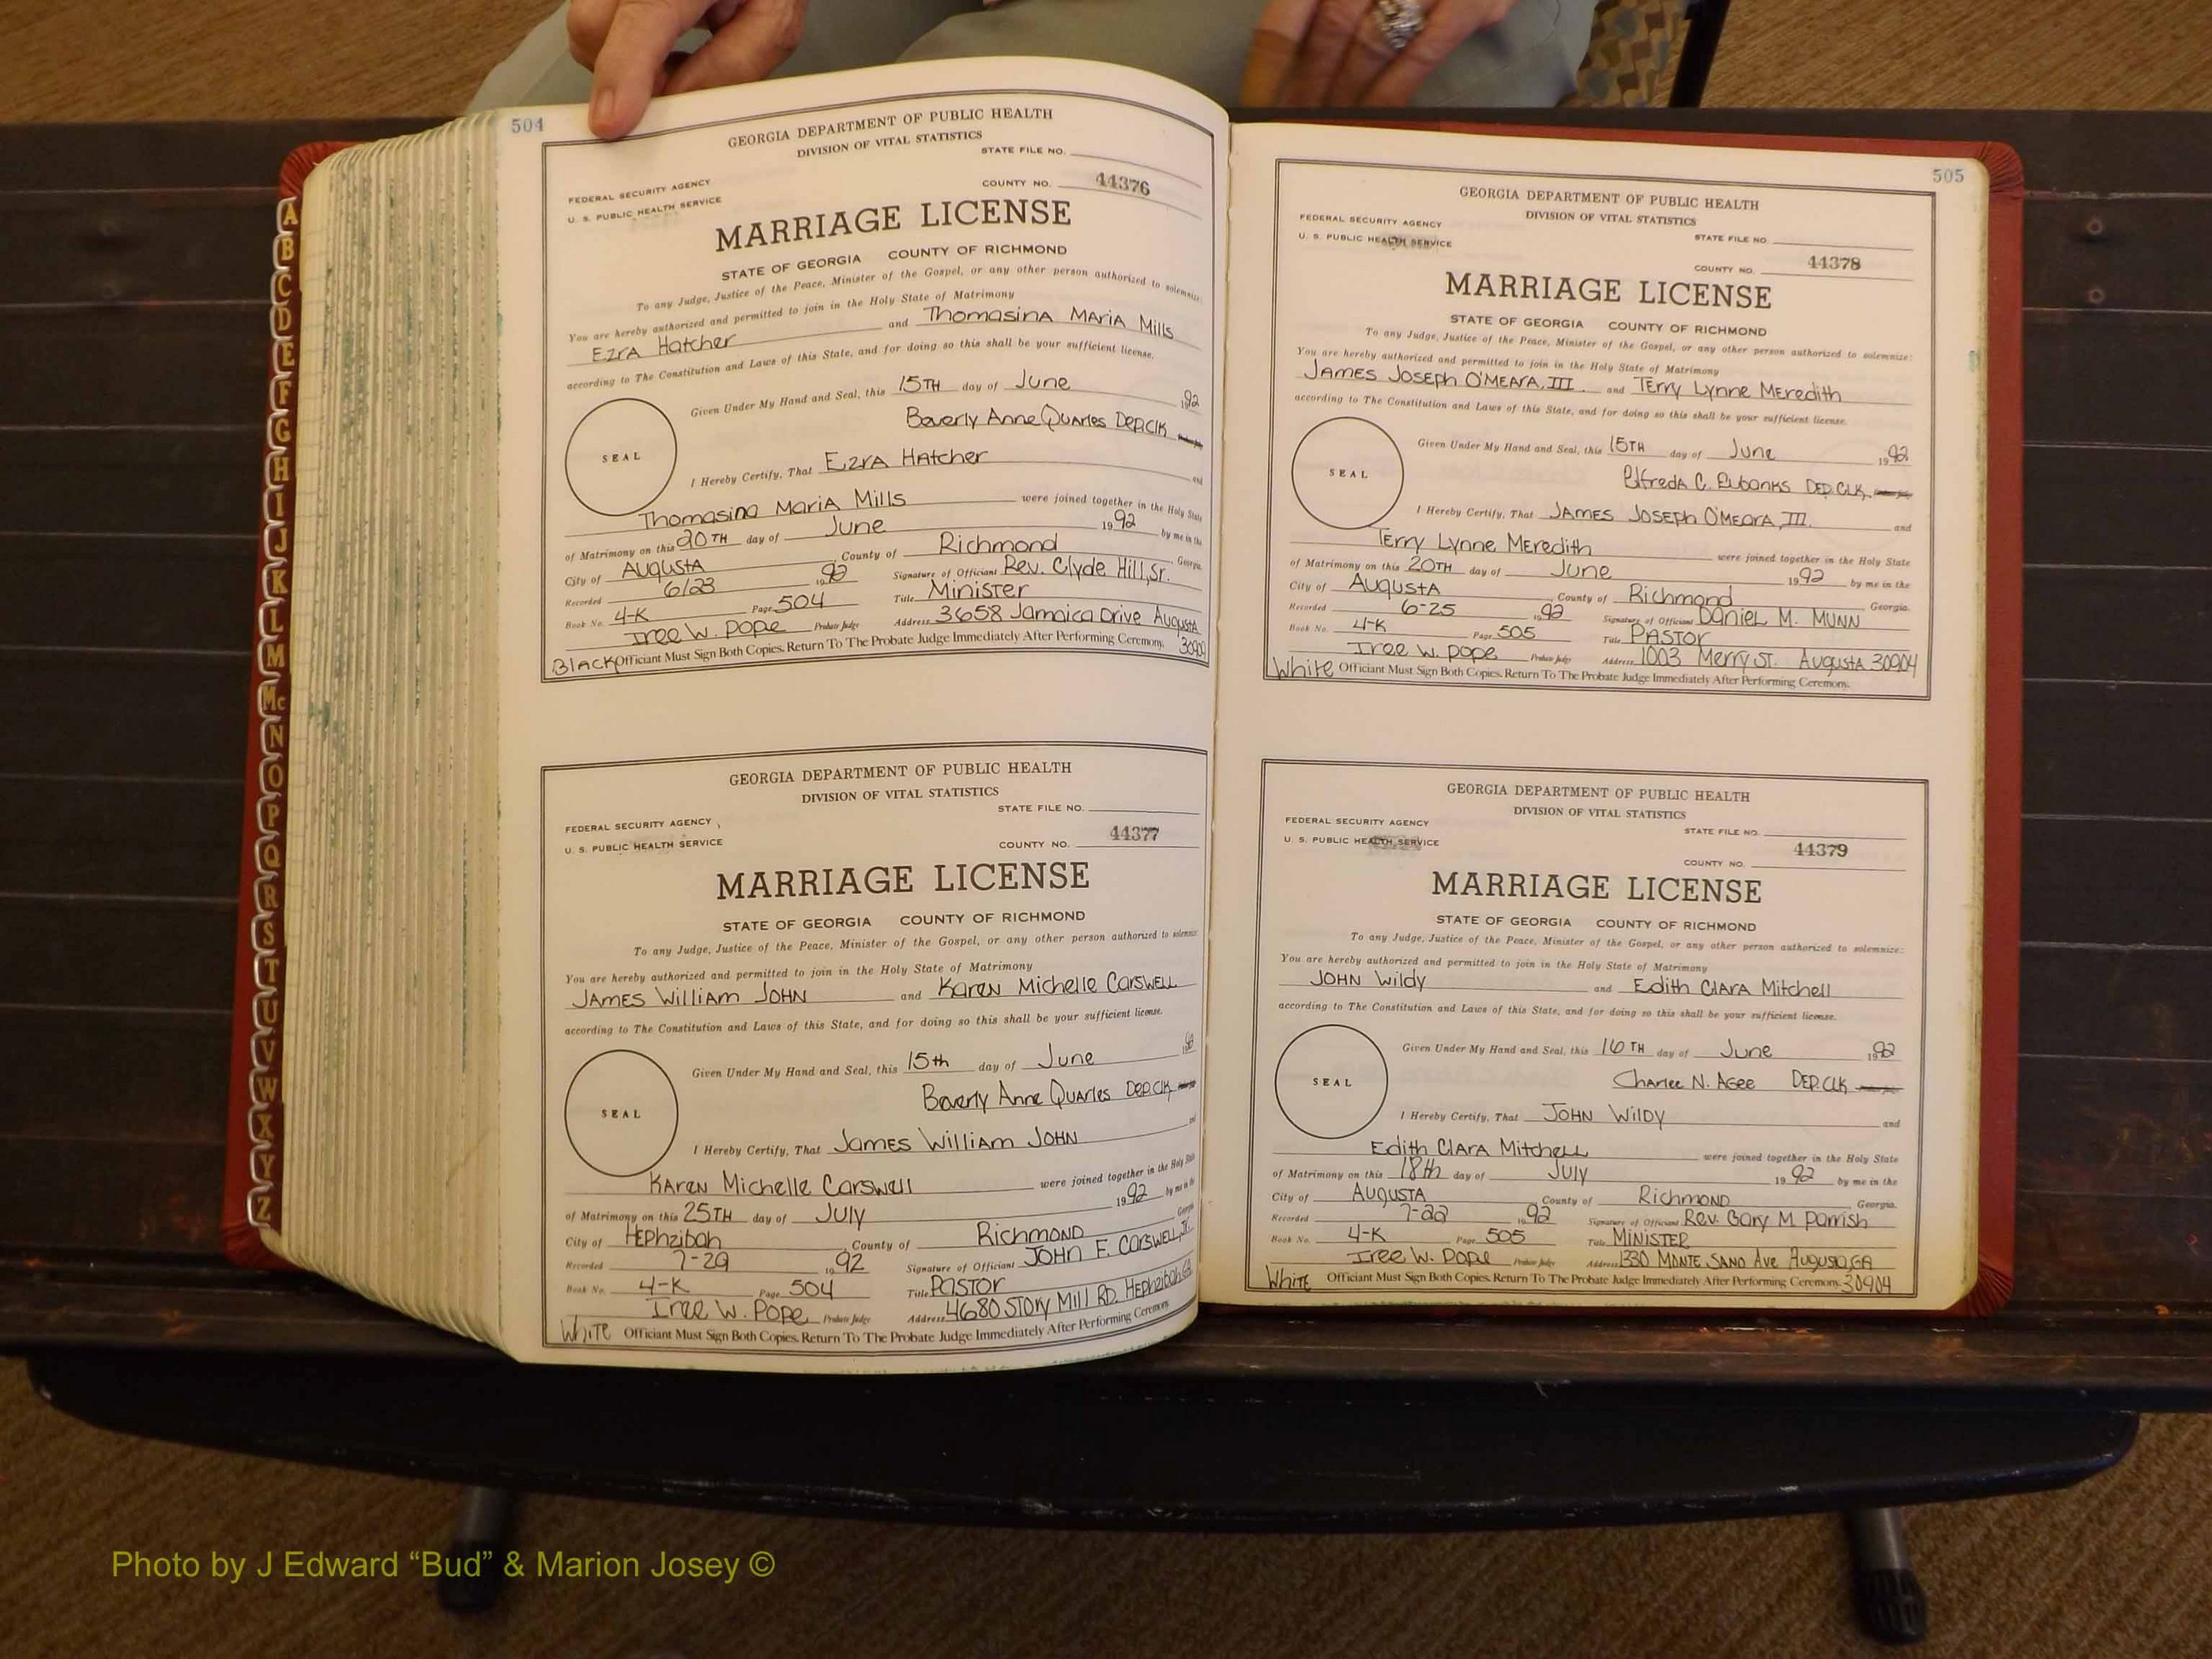 504
GEORGIA DEPARTMENT OF PUBLIC HEALTH
DIVISION OF VITAL STATISTICS
STATE FILE NO.
FEDERAL SECURITY AGENCY
U. S. PUBLIC HEALTH SERVICE
COUNTY NO. 44376
MARRIAGE LICENSE
STATE OF GEORGIA COUNTY OF RICHMOND
To any Judge, Justice of the Peace, Minister of the Gospel, or any other person authorized to solemnize:
You are hereby authorized and permitted to join in the Holy State of Matrimony
Ezra Hatcher and Thomasina Maria Mills
according to The Constitution and Laws of this State, and for doing so this shall be your sufficient license.
Given Under My Hand and Seal, this 15TH day of June 1992
Beverly Anne Quarles DEP.Clk
SEAL
I Hereby Certify, That Ezra Hatcher and
Thomasina Maria Mills were joined together in the Holy State
of Matrimony on this 20TH day of June 1992 by me in the
City of Augusta County of Richmond Georgia.
Recorded 6/23 1992 Signature of Officiant Rev. Clyde Hill, Sr.
Book No. 4-K Page 504 Title Minister
Iree W. Pope Probate Judge Address 3658 Jamaica Drive Augusta
Black Officiant Must Sign Both Copies. Return To The Probate Judge Immediately After Performing Ceremony.
GEORGIA DEPARTMENT OF PUBLIC HEALTH
DIVISION OF VITAL STATISTICS
STATE FILE NO.
FEDERAL SECURITY AGENCY
U. S. PUBLIC HEALTH SERVICE
COUNTY NO. 44377
MARRIAGE LICENSE
STATE OF GEORGIA COUNTY OF RICHMOND
To any Judge, Justice of the Peace, Minister of the Gospel, or any other person authorized to solemnize:
You are hereby authorized and permitted to join in the Holy State of Matrimony
James William John and Karen Michelle Carswell
according to The Constitution and Laws of this State, and for doing so this shall be your sufficient license.
Given Under My Hand and Seal, this 15th day of June
Beverly Anne Quarles DEP.Clk
SEAL
I Hereby Certify, That James William John and
Karen Michelle Carswell were joined together in the Holy State
of Matrimony on this 25TH day of July 1992 by me in the
City of Hephzibah County of Richmond Georgia
Recorded 7-29 1992 Signature of Officiant John F. Carswell, Jr.
Book No. 4-K Page 504 Title Pastor
Iree W. Pope Probate Judge Address 4680 Story Mill RD. Hephzibah, GA
White Officiant Must Sign Both Copies. Return To The Probate Judge Immediately After Performing Ceremony.
505
GEORGIA DEPARTMENT OF PUBLIC HEALTH
DIVISION OF VITAL STATISTICS
FEDERAL SECURITY AGENCY
STATE FILE NO.
U. S. PUBLIC HEALTH SERVICE
COUNTY NO. 44378
MARRIAGE LICENSE
STATE OF GEORGIA COUNTY OF RICHMOND
To any Judge, Justice of the Peace, Minister of the Gospel, or any other person authorized to solemnize:
You are hereby authorized and permitted to join in the Holy State of Matrimony
James Joseph O'Meara, III and Terry Lynne Meredith
according to The Constitution and Laws of this State, and for doing so this shall be your sufficient license.
Given Under My Hand and Seal, this 15TH day of June 1992
Elfreda C. Eubanks DEP.CLK.
SEAL
I Hereby Certify, That James Joseph O'Meara, III. and
Terry Lynne Meredith were joined together in the Holy State
of Matrimony on this 20TH day of June 1992 by me in the
City of Augusta County of Richmond Georgia.
Recorded 6-25 1992 Signature of Officiant Daniel M. Munn
Book No. 4-K Page 505 Title Pastor
Iree W. Pope Probate Judge Address 1003 Merry St. Augusta 30904
White Officiant Must Sign Both Copies. Return To The Probate Judge Immediately After Performing Ceremony.
GEORGIA DEPARTMENT OF PUBLIC HEALTH
DIVISION OF VITAL STATISTICS
FEDERAL SECURITY AGENCY
STATE FILE NO.
U. S. PUBLIC HEALTH SERVICE
COUNTY NO. 44379
MARRIAGE LICENSE
STATE OF GEORGIA COUNTY OF RICHMOND
To any Judge, Justice of the Peace, Minister of the Gospel, or any other person authorized to solemnize:
You are hereby authorized and permitted to join in the Holy State of Matrimony
John Wildy and Edith Clara Mitchell
according to The Constitution and Laws of this State, and for doing so this shall be your sufficient license.
Given Under My Hand and Seal, this 16TH day of June 1992
Charlee N. Agee DEP.CLK
SEAL
I Hereby Certify, That John Wildy and
Edith Clara Mitchell were joined together in the Holy State
of Matrimony on this 18th day of July 1992 by me in the
City of Augusta County of Richmond Georgia.
Recorded 7-22 1992 Signature of Officiant Rev. Gary M Parrish
Book No. 4-K Page 505 Title Minister
Iree W. Pope Probate Judge Address 1330 Monte Sano Ave Augusta, GA
White Officiant Must Sign Both Copies. Return To The Probate Judge Immediately After Performing Ceremony. 30904
A
B
C
D
E
F
G
H
I
J
K
L
M
Mc
N
O
P
Q
R
S
T
U
V
W
X
Y
Z
Photo by J Edward “Bud” & Marion Josey ©